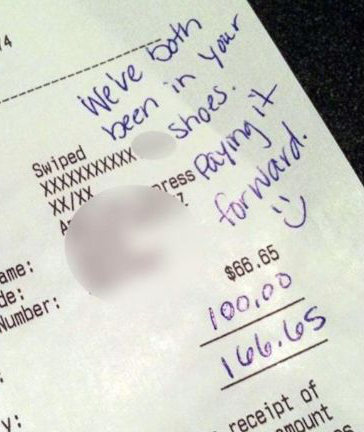 74
We've both
been in your
shoes.
Paying it
forward.
:)
Swiped
XXXXXXXXXXX
XX/XX
ress
ame:
de:
Number:
$66.65
100.00
166.65
:
y:
receipt of
amount